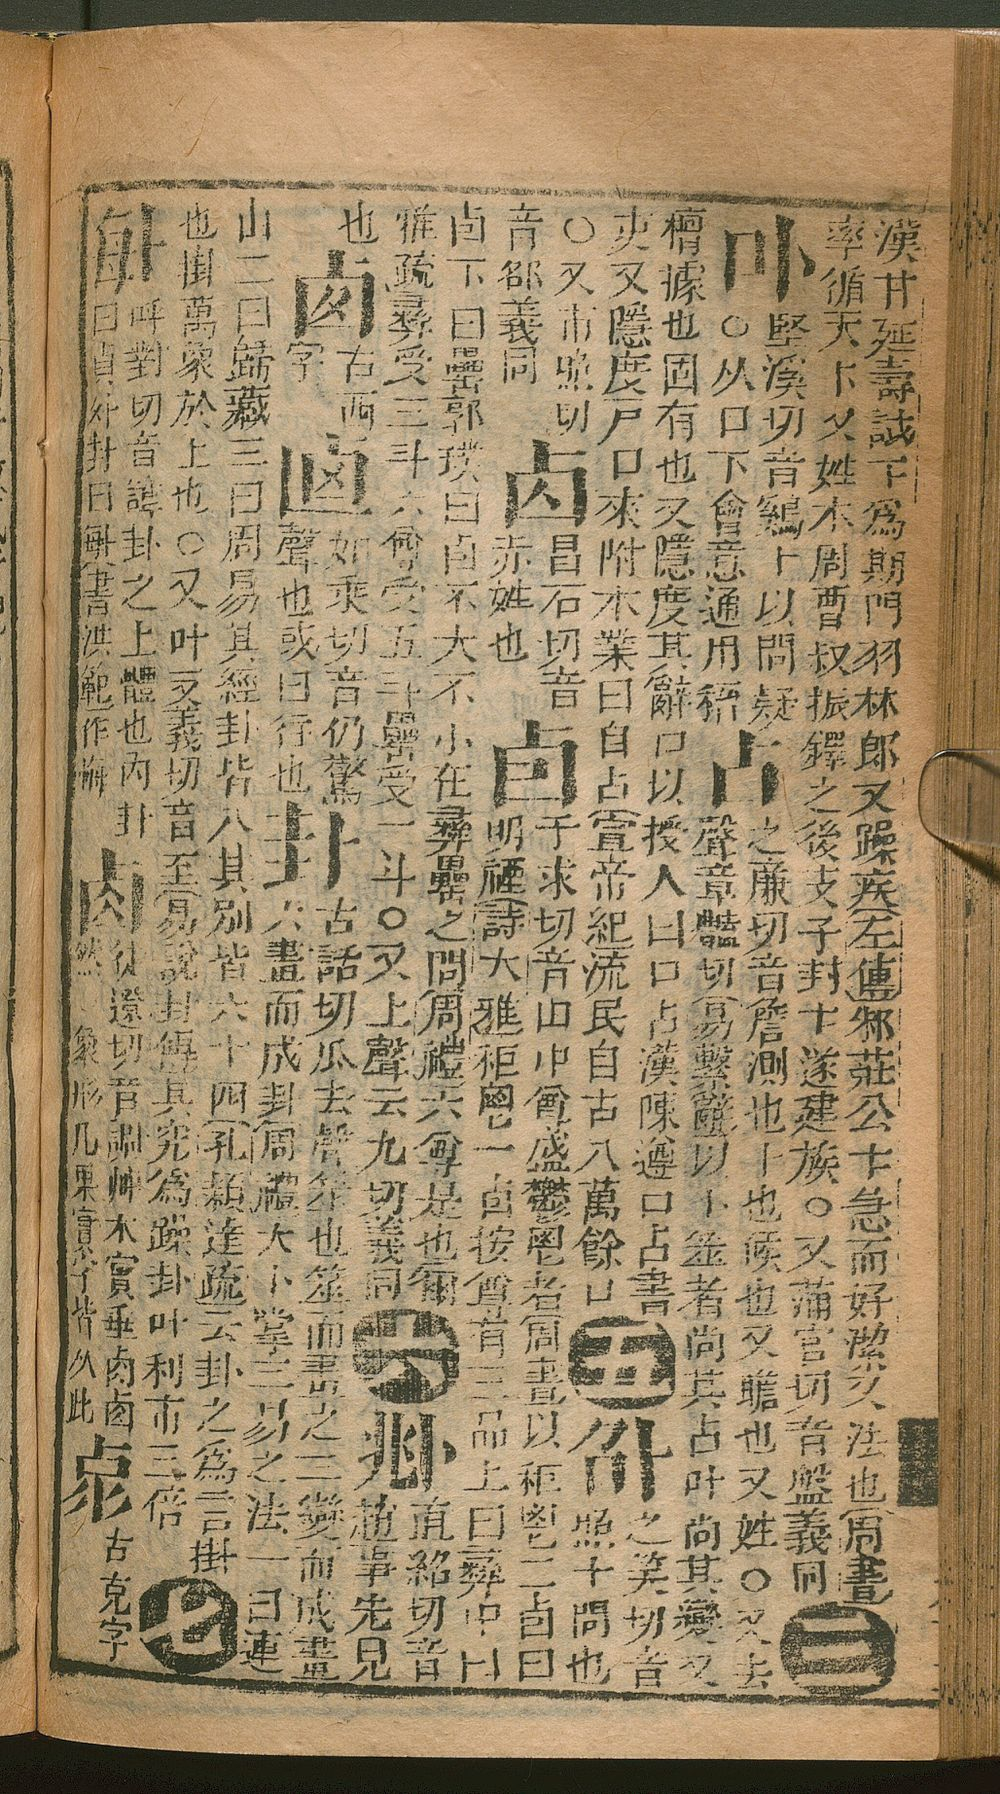 漢甘延壽試下爲期門羽林郎又躁疾左傳邾莊公卞急而好潔又法也周書
率循天卞又姓本周曹叔振鐸之後支子封卞遂建族○又蒲官切音盤義同 三
卟 堅溪切音鷄卜以問疑
○从口下會意通用稽
占 之廉切音詹測也卜也候也又瞻也又姓○又去
聲章豔切易繫辭以卜筮者尚其占叶尚其變又
檀據也固有也又隱度其辭口以授人曰口占漢陳遵口占書
吏又隱度戶口來附本業曰自占宣帝紀流民自古八萬餘口 五
卲 之笑切音
照卜問也
○又市照切
音邵義同
卤 昌石切音
赤姓也
卣 于求切音由中尊盛鬱鬯者周書以秬鬯二卣曰
明禋詩大雅秬鬯一卣按尊有三品上曰彝中曰
卣下曰罍郭璞曰卣不大不小在彝罍之間周禮六尊是也爾
雅疏彝受三斗六尊受五斗罍受一斗○又上聲云九切義同 六
𠧞 直紹切音
趙事先見
也
卥 古西
字
𠧟 如乘切音仍驚
聲也或曰行也
卦 古話切瓜去聲筮也筮而畫之二變而成畫
六畫而成卦周禮大卜掌三易之法一曰連
山二曰歸藏三曰周易其經卦皆八其別皆六十四孔穎達疏云卦之爲言掛
也掛萬象於上也○又叶叉義切音至易說卦傳其究爲躁卦叶利市三倍 七
𠧩 呼對切音誨卦之上體也內卦
曰貞外卦曰𠧩書洪範作悔
卤 徒遼切音調艸木實垂卤卤
然象形凡果實字皆从此
古克字